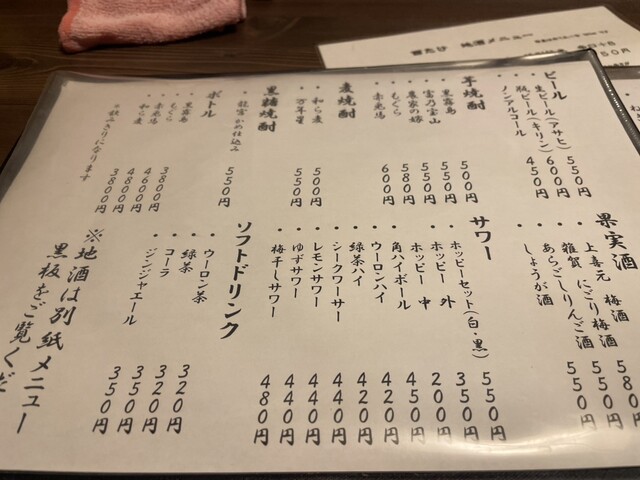 ビール
・生ビール(アサヒ) 550円
・瓶ビール(キリン) 600円
・ノンアルコール 450円
芋焼酎
・黒霧島 500円
・富乃宝山 550円
・農家の嫁 550円
・もぐら 580円
・赤兎馬 600円
麦焼酎
・和ら麦 500円
・万年星 550円
黒糖焼酎
・龍宮かめ仕込み 550円
ボトル
・黒霧島 3800円
・もぐら 4600円
・赤兎馬 4800円
・和ら麦 3800円
※飲みきりになります
果実酒
・上喜元 梅酒 580円
・雑賀 にごり梅酒 550円
・あらごしりんご酒 550円
・しょうが酒
サワー
・ホッピーセット(白・黒) 550円
・ホッピー 外 350円
・ホッピー 中 200円
・角ハイボール 450円
・ウーロンハイ 420円
・緑茶ハイ 420円
・シークワーサー 440円
・レモンサワー 440円
・ゆずサワー 440円
・梅干しサワー 480円
ソフトドリンク
・ウーロン茶 320円
・緑茶 320円
・コーラ 350円
・ジンジャエール 350円
※地酒は別紙メニュー
黒板をご覧くだ